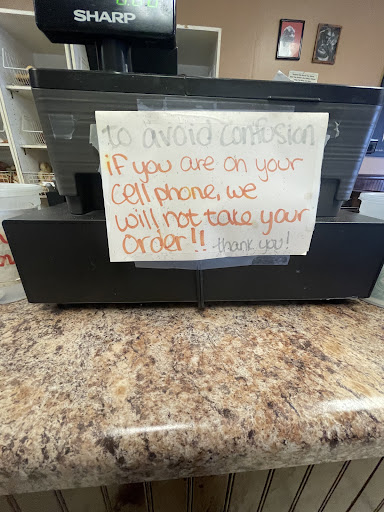 SHARP
to avoid confusion
if you are on your
cell phone, we
will not take your
order!! thank you!